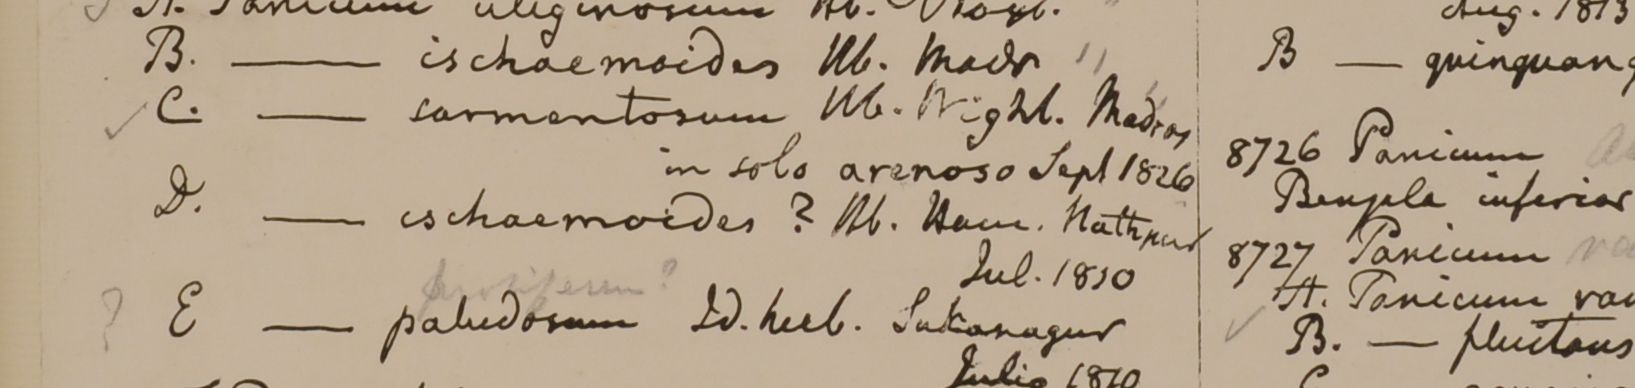 A. Panicum uliginosum Hb. Roxb.
B. — ischaemoides Hb. Madr "
C. — sarmentosum Hb. Wight. Madras
in solo arenoso Sept 1826
D. — ischaemoides ? Hb. Ham. Nathpur
Jul. 1810
proliferum ?
? E — paludosum Id. herb. Sukanagur
Julio 1810
Aug. 1813
B — quinquang
8726 Panicum
Bengela inferior
8727 Panicum
A. Panicum
B. — fluitans